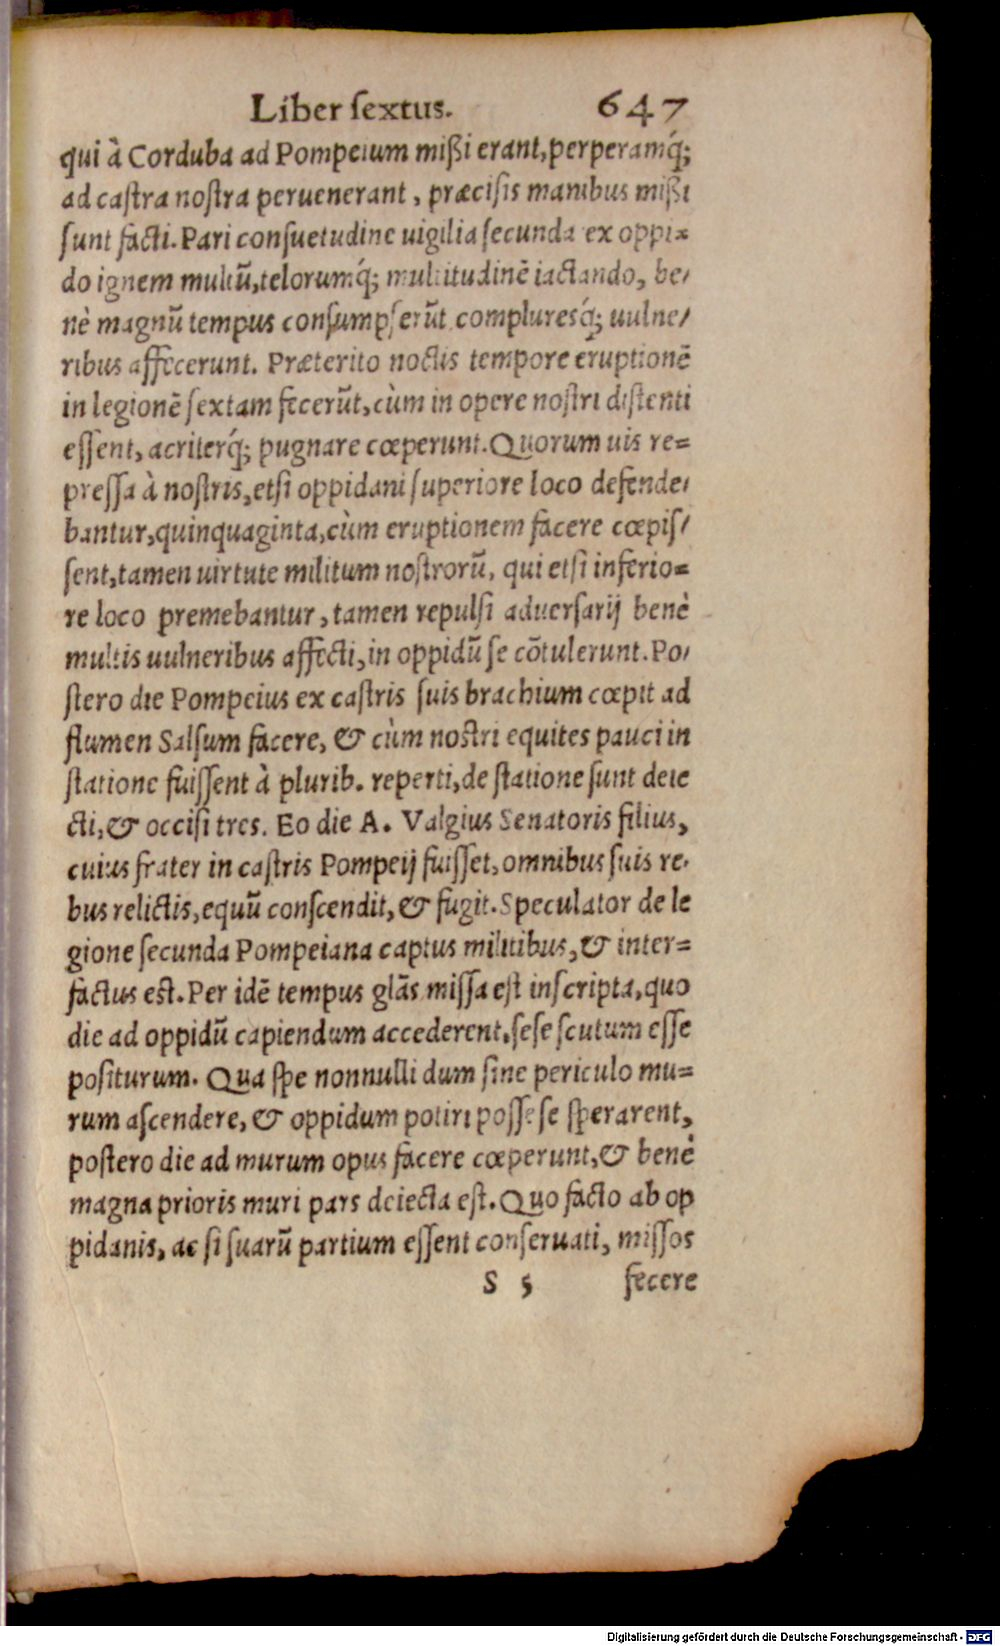 Liber ſextus. 647
qui à Corduba ad Pompeium mißi erant, perperamq́;
ad caſtra noſtra peruenerant, præciſis manibus mißi
ſunt facti. Pari conſuetudine uigilia ſecunda ex oppi=
do ignem multũ, telorumq́; multitudinē iactando, be/
nè magnũ tempus conſumpſerũt compluresq́; uulne/
ribus affecerunt. Præterito noctis tempore eruptionē
in legionē ſextam fecerũt, cùm in opere noſtri diſtenti
eſſent, acriterq́; pugnare cœperunt. Quorum uis re=
preſſa à noſtris, etſi oppidani ſuperiore loco defende/
bantur, quinquaginta, cùm eruptionem facere cœpiſ/
ſent, tamen uirtute militum noſtrorũ, qui etſi inferio=
re loco premebantur, tamen repulſi aduerſarij benè
multis uulneribus affecti, in oppidũ ſe cōtulerunt. Po/
ſtero die Pompeius ex caſtris ſuis brachium cœpit ad
flumen Salſum facere, & cùm noſtri equites pauci in
ſtatione fuiſſent à plurib. reperti, de ſtatione ſunt deie
cti, & occiſi tres. Eo die A. Valgius Senatoris filius,
cuius frater in caſtris Pompeij fuiſſet, omnibus ſuis re/
bus relictis, equũ conſcendit, & fugit. Speculator de le
gione ſecunda Pompeiana captus militibus, & inter=
factus eſt. Per idē tempus glãs miſſa eſt inſcripta, quo
die ad oppidũ capiendum accederent, ſeſe ſcutum eſſe
poſiturum. Qua ſpe nonnulli dum ſine periculo mu=
rum aſcendere, & oppidum potiri poſſe ſe ſperarent,
poſtero die ad murum opus facere cœperunt, & benè
magna prioris muri pars deiecta eſt. Quo facto ab op
pidanis, ac ſi ſuarũ partium eſſent conſeruati, miſſos
S 5 fecere
Digitalisierung gefördert durch die Deutsche Forschungsgemeinschaft - DFG